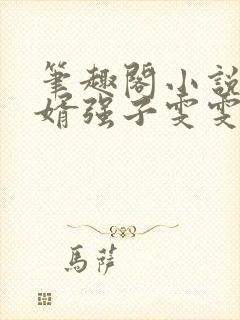 筆趣閣小說
婿強子雯雯
馬薩